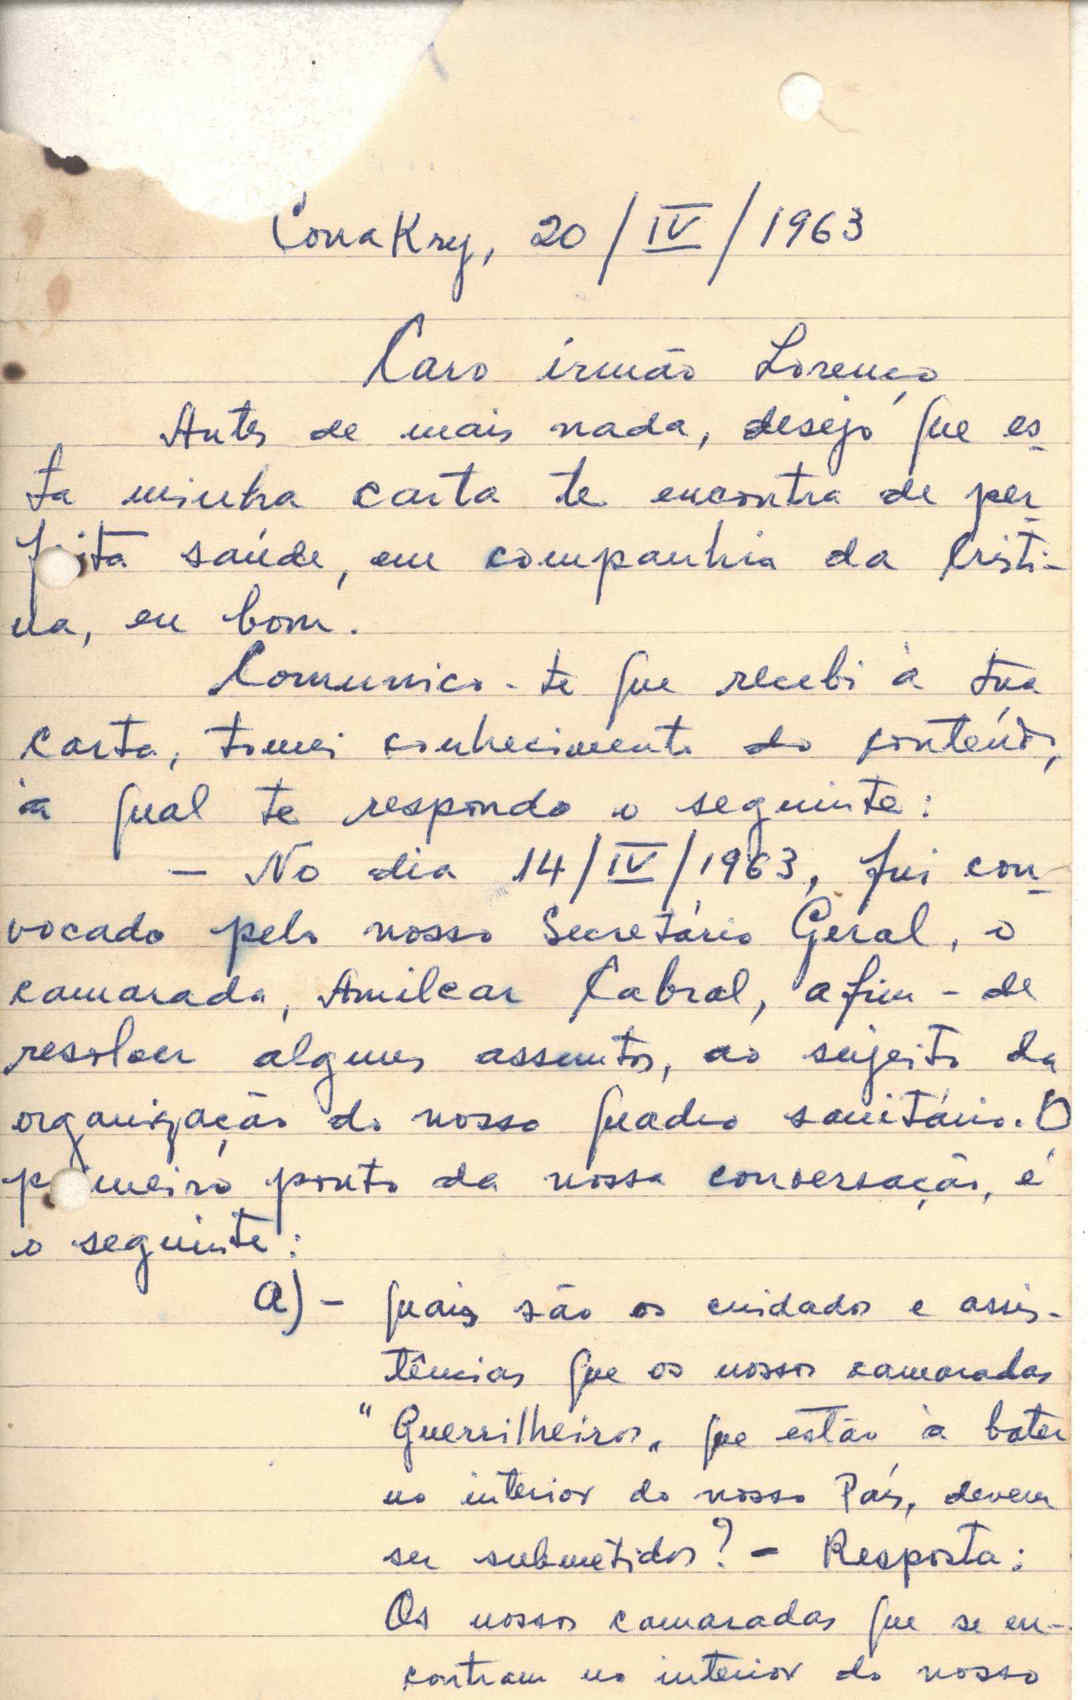 Conakry, 20/IV/1963
Caro irmão Lorenço
Antes de mais nada, desejo que es-
ta minha carta te encontra de per-
feita saúde, em companhia da Cristi-
na, eu bom.
Comunico-te que recebi à tua
carta, tomei conhecimento do conteúdo,
à qual te respondo o seguinte:
- No dia 14/IV/1963, fui con-
vocado pelo nosso Secretário Geral, o
camarada, Amilcar Cabral, afim-de
resolver algums assuntos, ao sujeito da
organização do nosso quadro sanitário. O
primeiro ponto da nossa conversação, é
o seguinte:
a) - Quais são os cuidados e assis-
tências que os nossos camaradas
"Guerrilheiros" que estão à bater
no interior do nosso País, devem
ser submetidos? - Resposta:
Os nossos camaradas que se en-
contram no interior do nosso